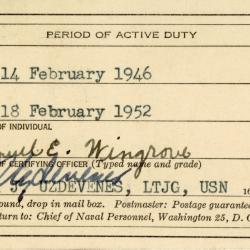 PERIOD OF ACTIVE DUTY
14 February 1946
18 February 1952
OF INDIVIDUAL
muel E. Wingrove
OF CERTIFYING OFFICER (Typed name and grade)
UZDEVENES, LTJG, USN 16
ound, drop in mail box. Postmaster: Postage guarante
turn to: Chief of Naval Personnel, Washington 25, D. C